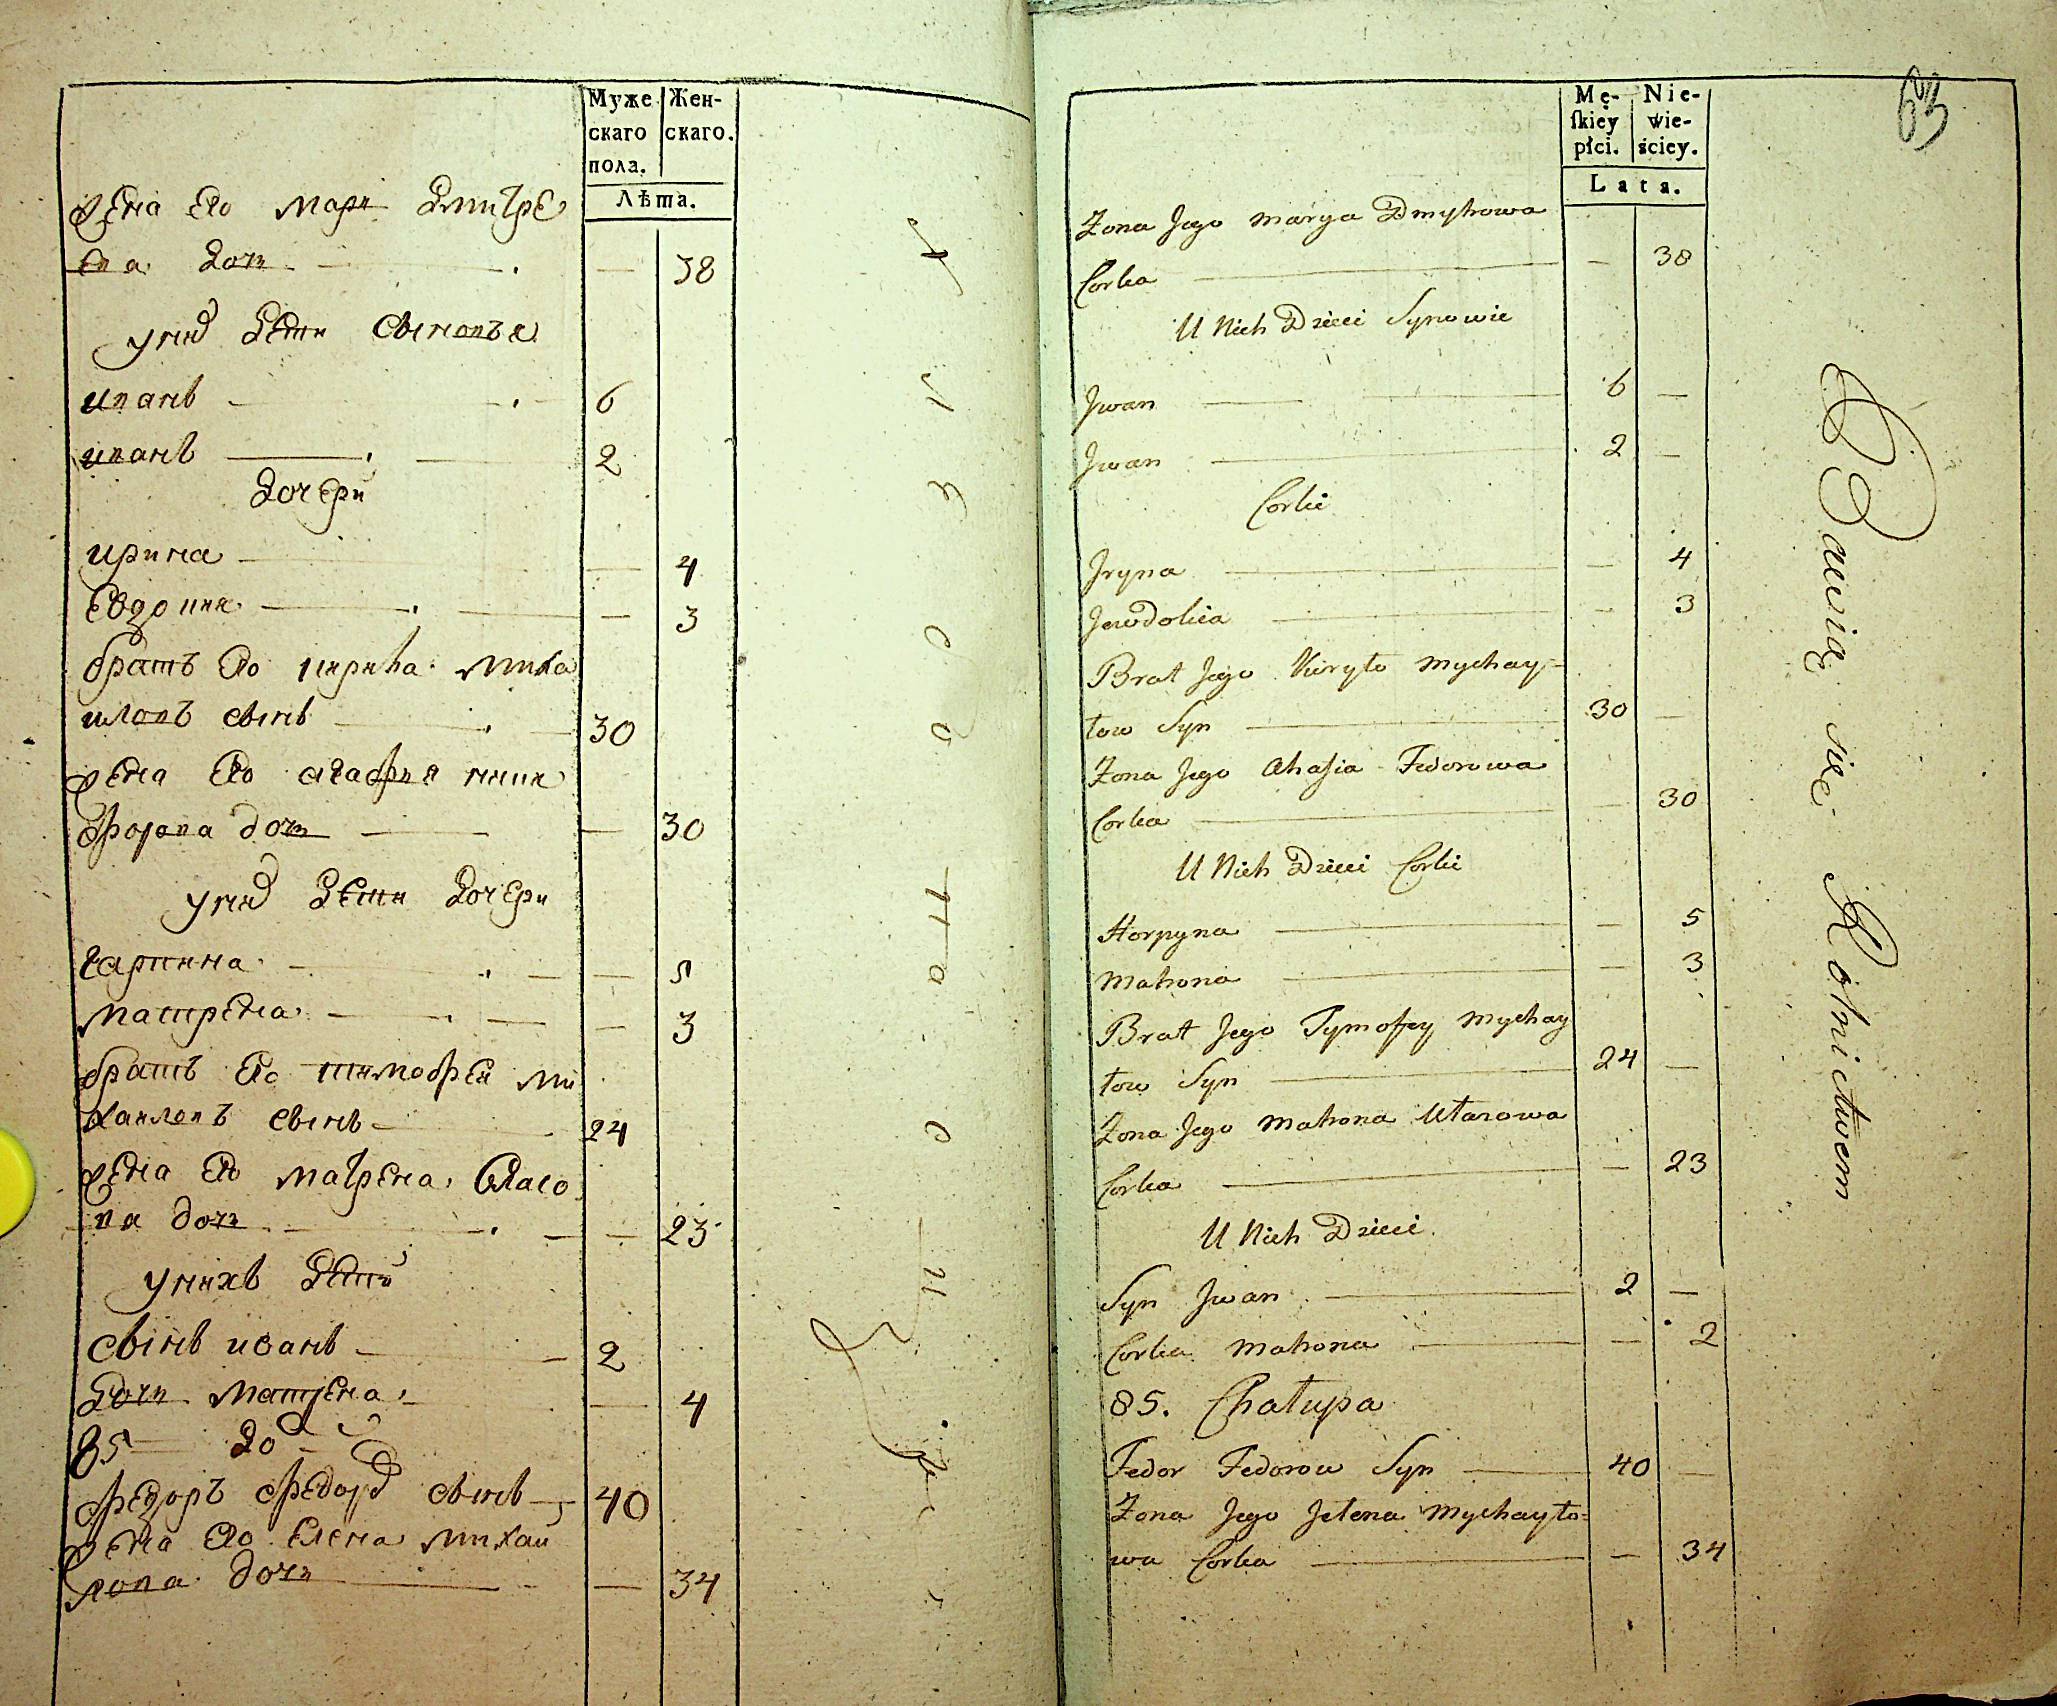 Муже
скаго
пола.
Жен-
скаго.
Лѣта.
жена его мари дмитре
ева дочь — 38
у них дети сыновья
иванъ — 6
иванъ — 2
дочери
ирина — 4
евдокия — 3
братъ его кирила миха
иловъ сынъ — 30
жена его агафия
дочь — 30
у них дети дочери
гарпина — 5
матрена — 3
братъ его тимофей ми
хаиловъ сынъ — 24
жена его матрена власо
ва дочь — 23
у нихъ дети
сынъ иванъ — 2
дочь матрена — 4
85
федоръ федоров сынъ — 40
жена его елена михаи
лова дочь — 34
63
Mę-
ſkiey
płci.
Nie-
wie-
ściey.
Lata.
Żona Jego Marya Dmytrowa
Corka — 38
U Nich Dzieci Synowie
Jwan — 6 —
Jwan — 2 —
Corki
Jryna — 4
Jewdokia — 3
Brat Jego Kiryło Mychay=
łow Syn — 30 —
Żona Jego Ahafia Fedorowa
Corka — 30
U Nich Dzieci Corki
Horpyna — 5
Matrona — 3
Brat Jego Tymofey Mychay
łow Syn — 24 —
Żona Jego Matrona Ułasowa
Corka — 23
U Nich Dzieci
Syn Jwan — 2 —
Corka Matrona — 2
85. Chałupa
Fedor Fedorow Syn — 40 —
Żona Jego Jełena Mychayło=
wa Corka — 34
Bawią się Rolnictwem